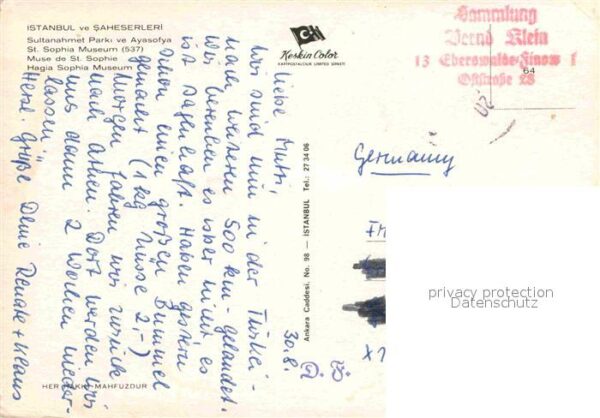 İSTANBUL ve ŞAHESERLERİ
Sultanahmet Parkı ve Ayasofya
St. Sophia Museum (537)
Muse de St. Sophie
Hagia Sophia Museum
Keskin Color
KARTPOSTALCILIK LIMITED ŞİRKETİ
Sammlung
Bernd Klein
13 Eberswalde-Finow 1
Oststraße 28
64
Liebe Mutti,
wir sind nun in der Türkei -
nach weiteren 500 km - gelandet.
Wir bereuen es aber nicht, es
ist sagenhaft. Haben gestern
schon einen großen Bummel
gemacht (1 kg Nüsse 2,-)
Morgen fahren wir zurück
nach Athen. Dort werden wir
uns dann 2 Wochen nieder-
lassen!
Herzl. Grüße Deine Renate + Klaus
30.8.
Ankara Caddesi, No. 98 — İSTANBUL Tel.: 27 34 06
Germany
privacy protection
Datenschutz
HER HAKKI MAHFUZDUR